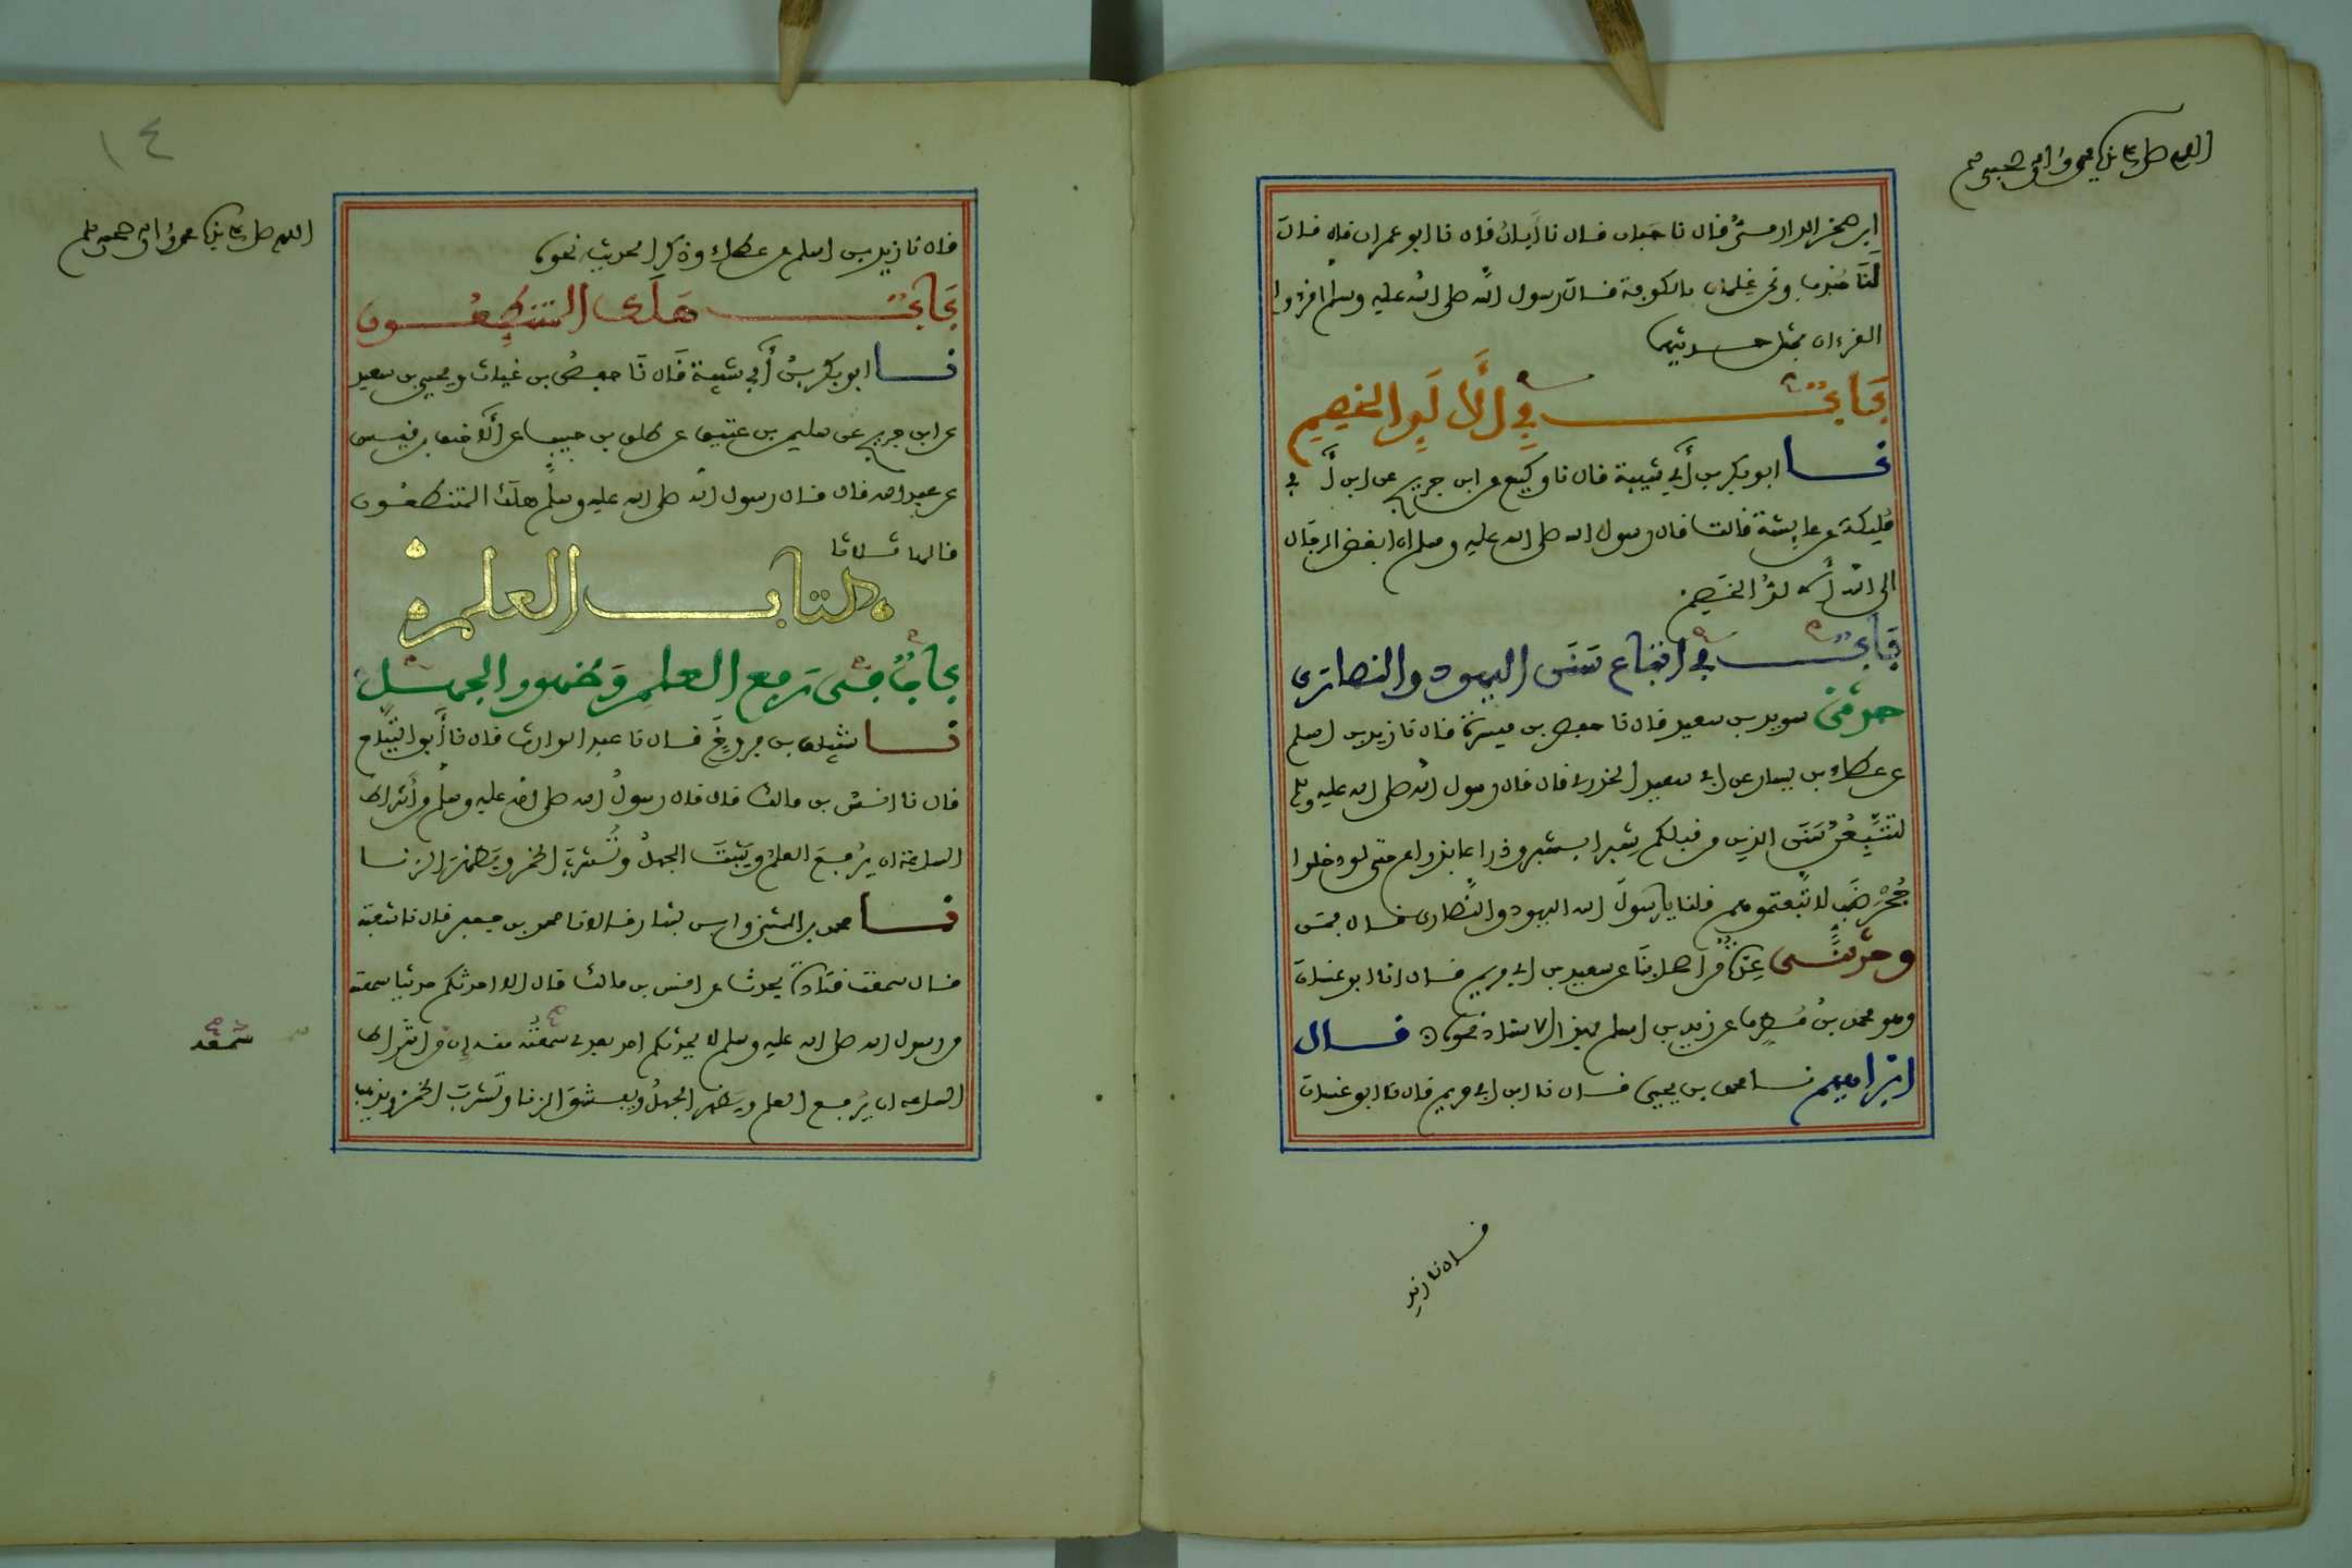 اللهم صل على سيدنا محمد وآله وصحبه وسلم
ابن صخر الدارمي قال نا حبان قال نا أبان قال نا ابو عمران قال قال
لنا جندب ونحن غلمان بالكوفة قال رسول الله صلى الله عليه وسلم اقرءوا
القرءان بمثل حديثهما
باب في الألد الخصم
نا ابو بكر بن أبي شيبة قال نا وكيع عن ابن جريج عن ابن أبي
مليكة عن عايشة قالت قال رسول الله صلى الله عليه وسلم ان ابغض الرجال
الى الله الألد الخصم
باب في اتباع سنن اليهود والنصارى
حدثني سويد بن سعيد قال نا حفص بن ميسرة قال نا زيد بن اسلم
عن عطاء بن يسار عن ابي سعيد الخدري قال قال رسول الله صلى الله عليه وسلم
لتتبعن سنن الذين من قبلكم شبرا بشبر وذراعا بذراع حتى لو دخلوا
جحر ضب لاتبعتموهم قلنا يا رسول الله اليهود والنصارى قال فمن
وحدثني عدة من اصحابنا عن سعيد بن ابي مريم قال انا ابو غسان
وهو محمد بن مطرف عن زيد بن اسلم بهذا الاسناد نحوه قال
ابراهيم نا محمد بن يحيى قال نا ابن ابي مريم قال نا ابو غسان
قال نا زيد
١٤
اللهم صل على سيدنا محمد وآله وصحبه وسلم
قال نا زيد بن اسلم عن عطاء وذكر الحديث نحوه
باب هلك المتنطعون
نا ابو بكر بن أبي شيبة قال نا حفص بن غياث ويحيى بن سعيد
عن ابن جريج عن سليمن بن عتيق عن طلق بن حبيب عن الأحنف بن قيس
عن عبد الله قال قال رسول الله صلى الله عليه وسلم هلك المتنطعون
قالها ثلاثا
كتاب العلم
باب في رفع العلم وظهور الجهل
نا شيبان بن فروخ قال نا عبد الوارث قال نا أبو التياح
قال نا انس بن مالك قال قال رسول الله صلى الله عليه وسلم من أشراط
الساعة ان يرفع العلم ويثبت الجهل وتشرب الخمر ويظهر الزنا
نا محمد بن المثنى وابن بشار قالا نا محمد بن جعفر قال نا شعبة
قال سمعت قتادة يحدث عن انس بن مالك قال الا احدثكم حديثا سمعته
من رسول الله صلى الله عليه وسلم لا يحدثكم احد بعدي سمعه منه إن من اشراط
سمعه
الساعة ان يرفع العلم ويظهر الجهل ويفشو الزنا وتشرب الخمر ويذهب